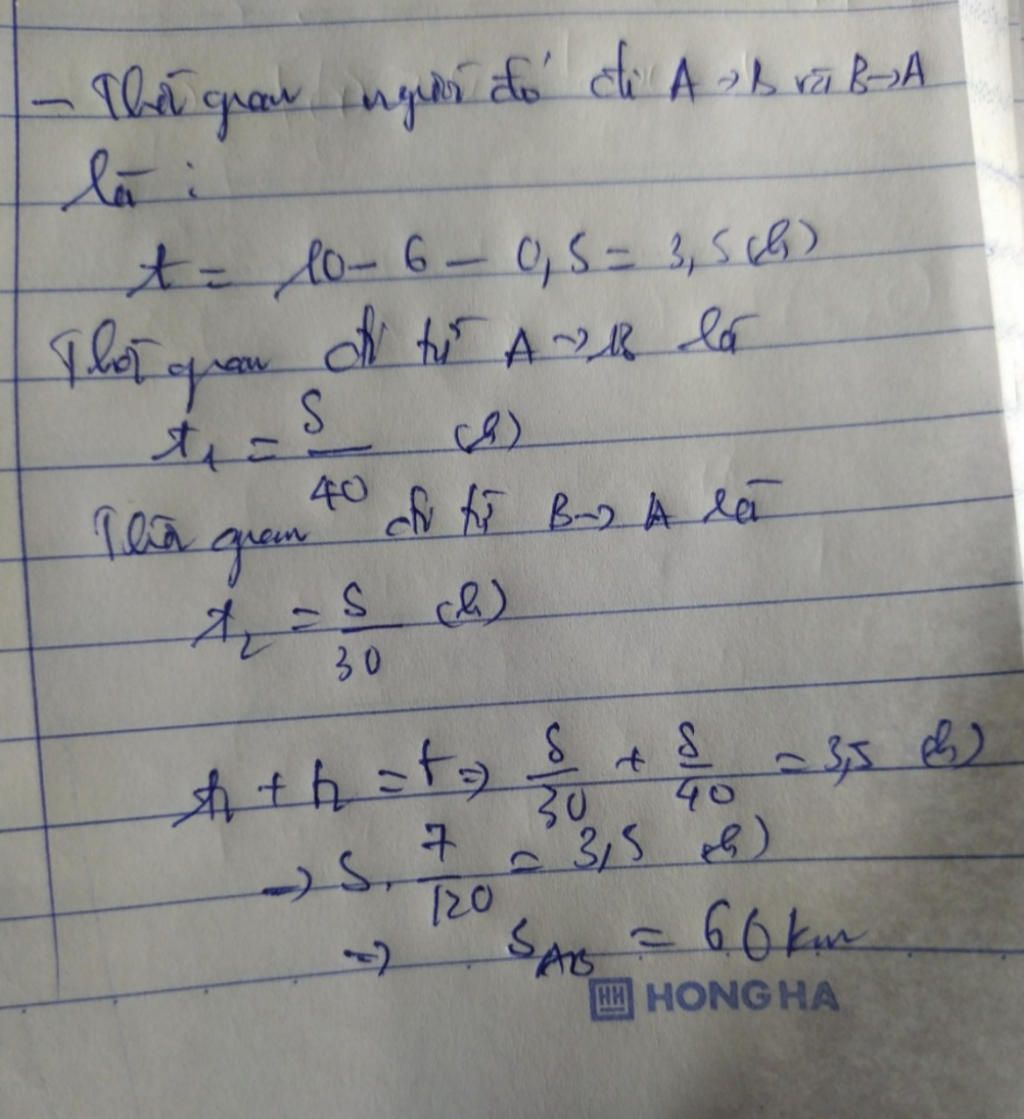 - Thời gian người đó đi A → B và B → A
là :
t = 10 - 6 - 0,5 = 3,5 (h)
Thời gian đi từ A → B là
t₁ = S/40 (h)
Thời gian đi từ B → A là
t₂ = S/30 (h)
t₁ + t₂ = t => S/30 + S/40 = 3,5 (h)
→ S . 7/120 = 3,5 (h)
=> S_AB = 60 km
HH HONG HA